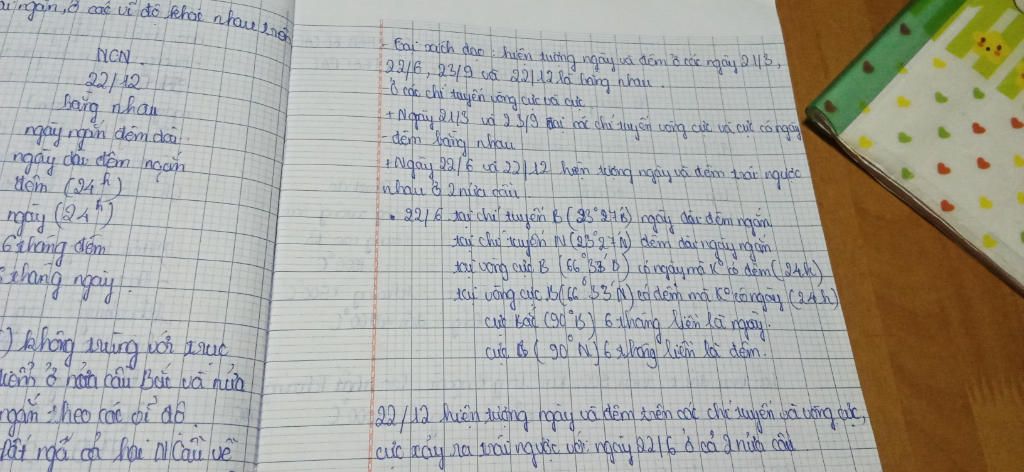 ngắn, ở các vĩ độ khác nhau trên
NCN
22/12
Bằng nhau
ngày ngắn đêm dài
ngày dài đêm ngắn
đêm (24h)
ngày (24h)
6 tháng đêm
tháng ngày
) không trùng với trục
ở nửa cầu Bắc và nửa
ngắn theo các vĩ độ
ngả cả hai N Cầu về
- Tại xích đạo: hiện tượng ngày và đêm ở các ngày 21/3,
22/6, 23/9 và 22/12 là bằng nhau.
- Ở các chí tuyến vòng cực và cực
+ Ngày 21/3 và 23/9 tại các chí tuyến vòng cực và cực có ngày
- đêm bằng nhau
+ Ngày 22/6 và 22/12 hiện tượng ngày và đêm trái ngược
nhau ở 2 nửa cầu.
• 22/6 tại chí tuyến B (23°27'B) ngày dài đêm ngắn
tại chí tuyến N (23°27'N) đêm dài ngày ngắn
tại vòng cực B (66°33'B) có ngày mà K° có đêm (24h)
tại vòng cực B (66°33'N) có đêm mà K° có ngày (24h)
cực Bắc (90°B) 6 tháng liền là ngày.
cực B (90°N) 6 tháng liền là đêm.
22/12 hiện tượng ngày và đêm trên các chí tuyến và vòng cực,
cực xảy ra trái ngược với ngày 22/6 ở cả 2 nửa cầu